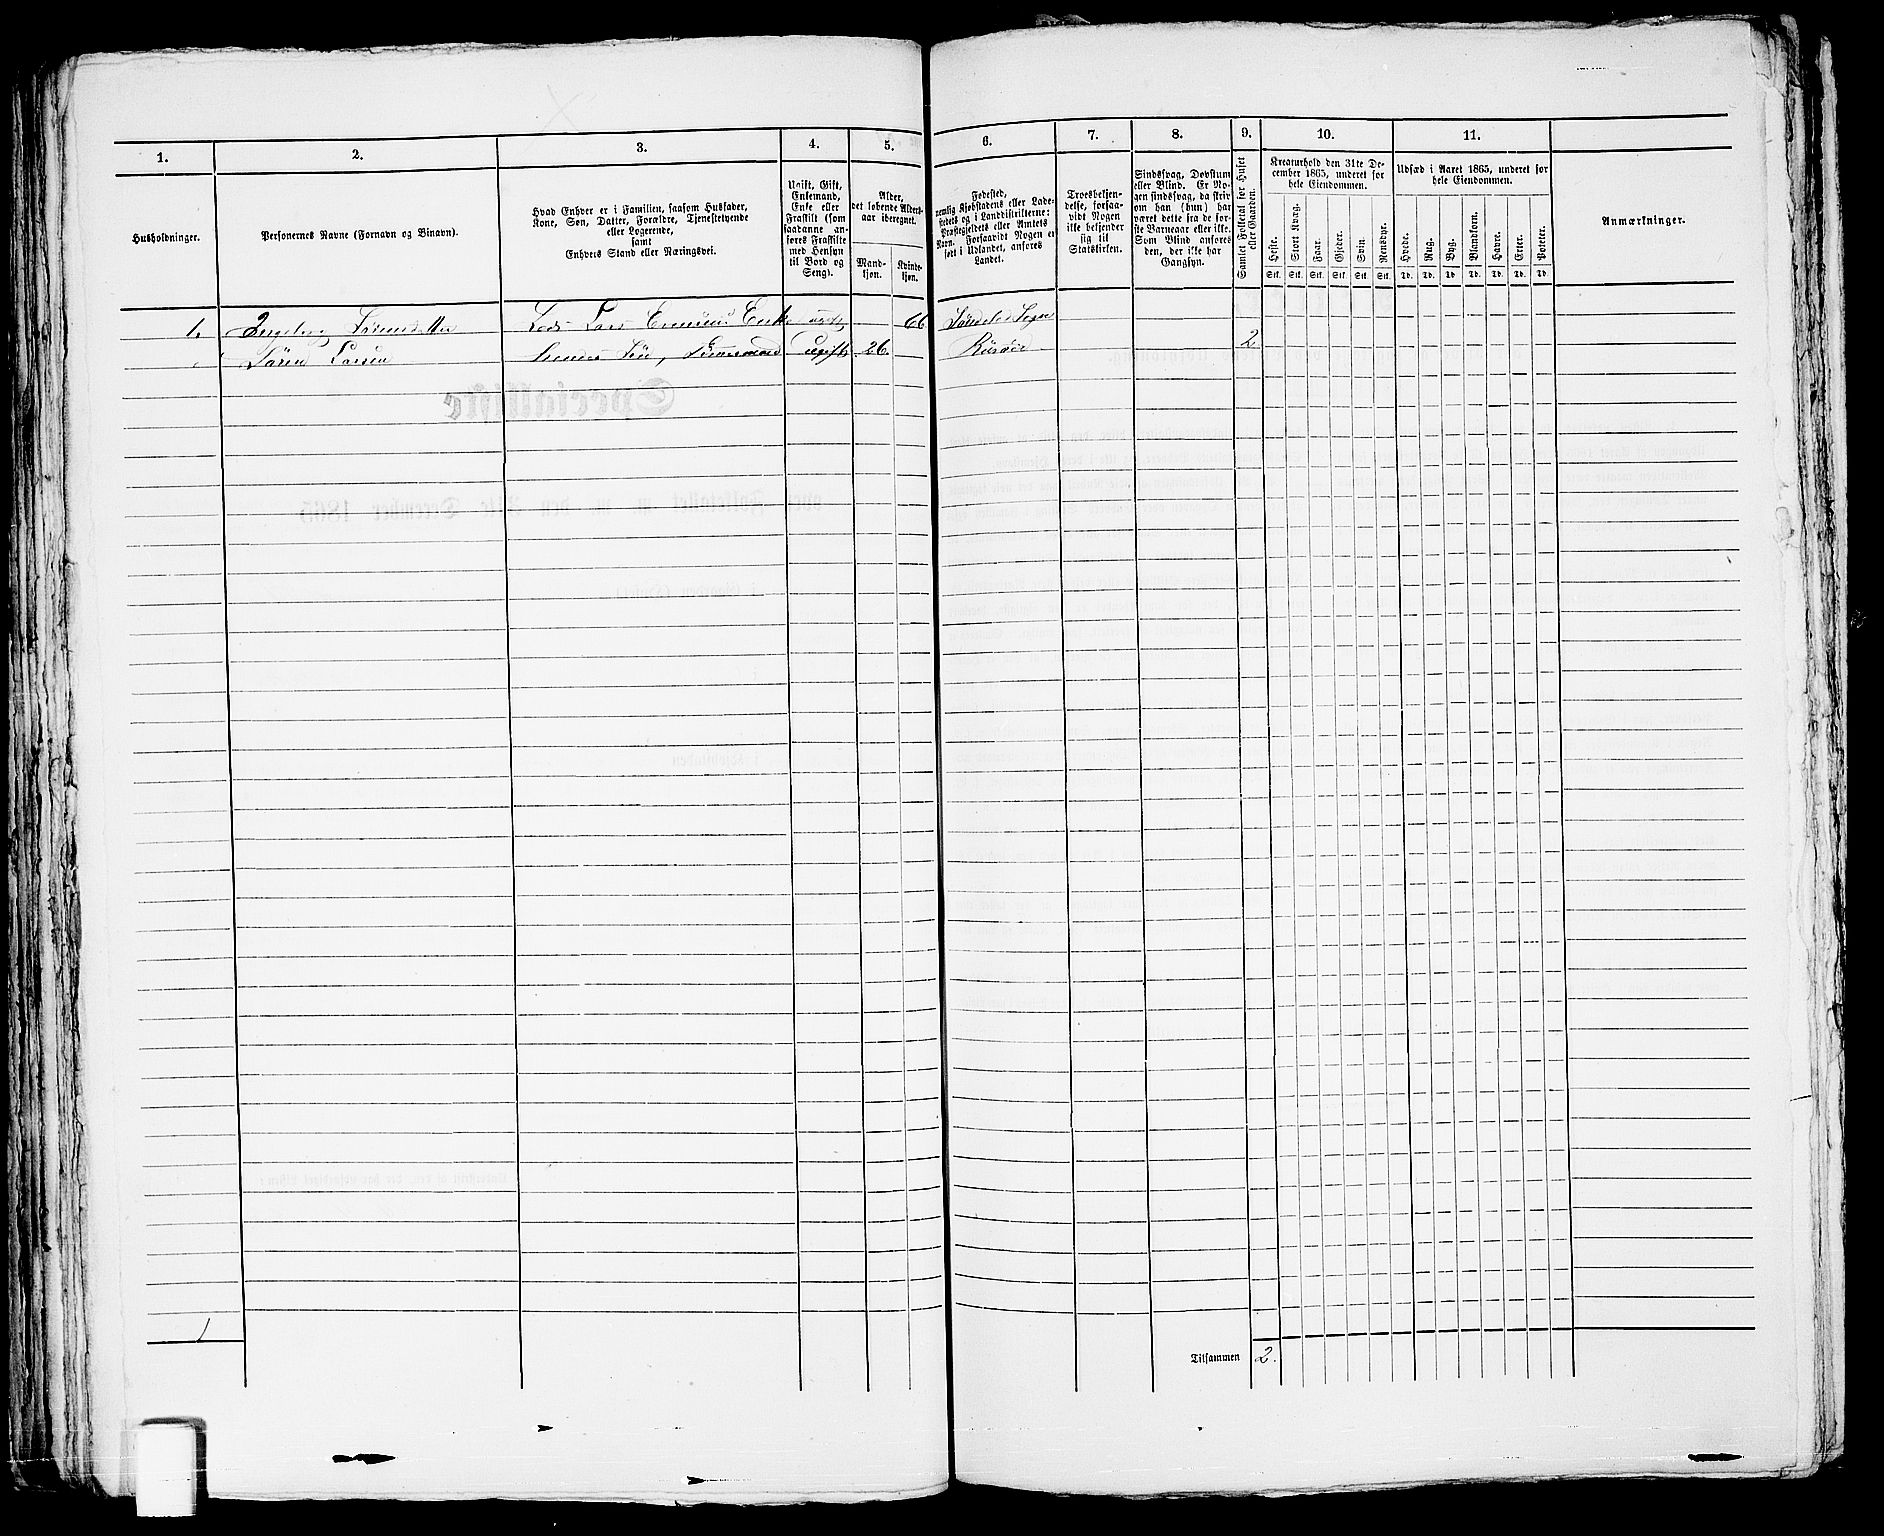 1.
2.
3.
4.
5.
6.
7.
8.
9.
10.
11.
Husholdninger.
Personernes Navne (Fornavn og Binavn).
Hvad Enhver er i Familien, saasom Husfader,
Kone, Søn, Datter, Forældre, Tjenestetyende
eller Logerende,
samt
Enhvers Stand eller Næringsvei.
Ugift, Gift,
Enkemand,
Enke eller
Fraskilt (som
saadanne an-
føres Fraskilte
med Hensyn
til Bord og
Seng).
Alder,
det løbende Alders-
aar iberegnet.
Mand-
kjøn.
Kvinde-
kjøn.
Fødested,
nemlig Kjøbstadens eller Lade-
stedets og i Landdistrikterne:
Præstegjeldets eller Amtets
Navn. Forsaavidt Nogen er
født i Udlandet, anføres
Landet.
Troesbekjen-
delse, forsaa-
vidt Nogen
ikke bekjender
sig til
Statskirken.
Sindssvag, Døvstum
eller Blind. Er No-
gen sindssvag, da skriv
om han (hun) har
været dette fra de før-
ste Barneaar eller ikke.
Som Blind anføres
den, der ikke har
Gangsyn.
Samlet Folketal for Huset
eller Gaarden.
Kreaturhold den 31te De-
cember 1865, underet for
hele Eiendommen.
Heste.
Stort Kvæg.
Faar.
Gjeder.
Svin.
Rensdyr.
Stk. Stk. Stk. Stk. Stk. Stk.
Udsæd i Aaret 1865, underet for
hele Eiendommen.
Hvede.
Rug.
Byg.
Blandkorn.
Havre.
Erter.
Poteter.
Td. Td. Td. Td. Td. Td. Td.
Anmærkninger.
1. Ingeborg Sørensdatter Lods Lars Enke 66 Søndeled Sogn
Søren Larsen hendes Søn, Tømmermand Ugift 26 Risøer 2
1
Tilsammen 2.